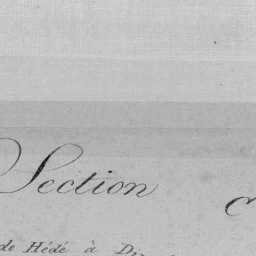 Section
de Hédé à